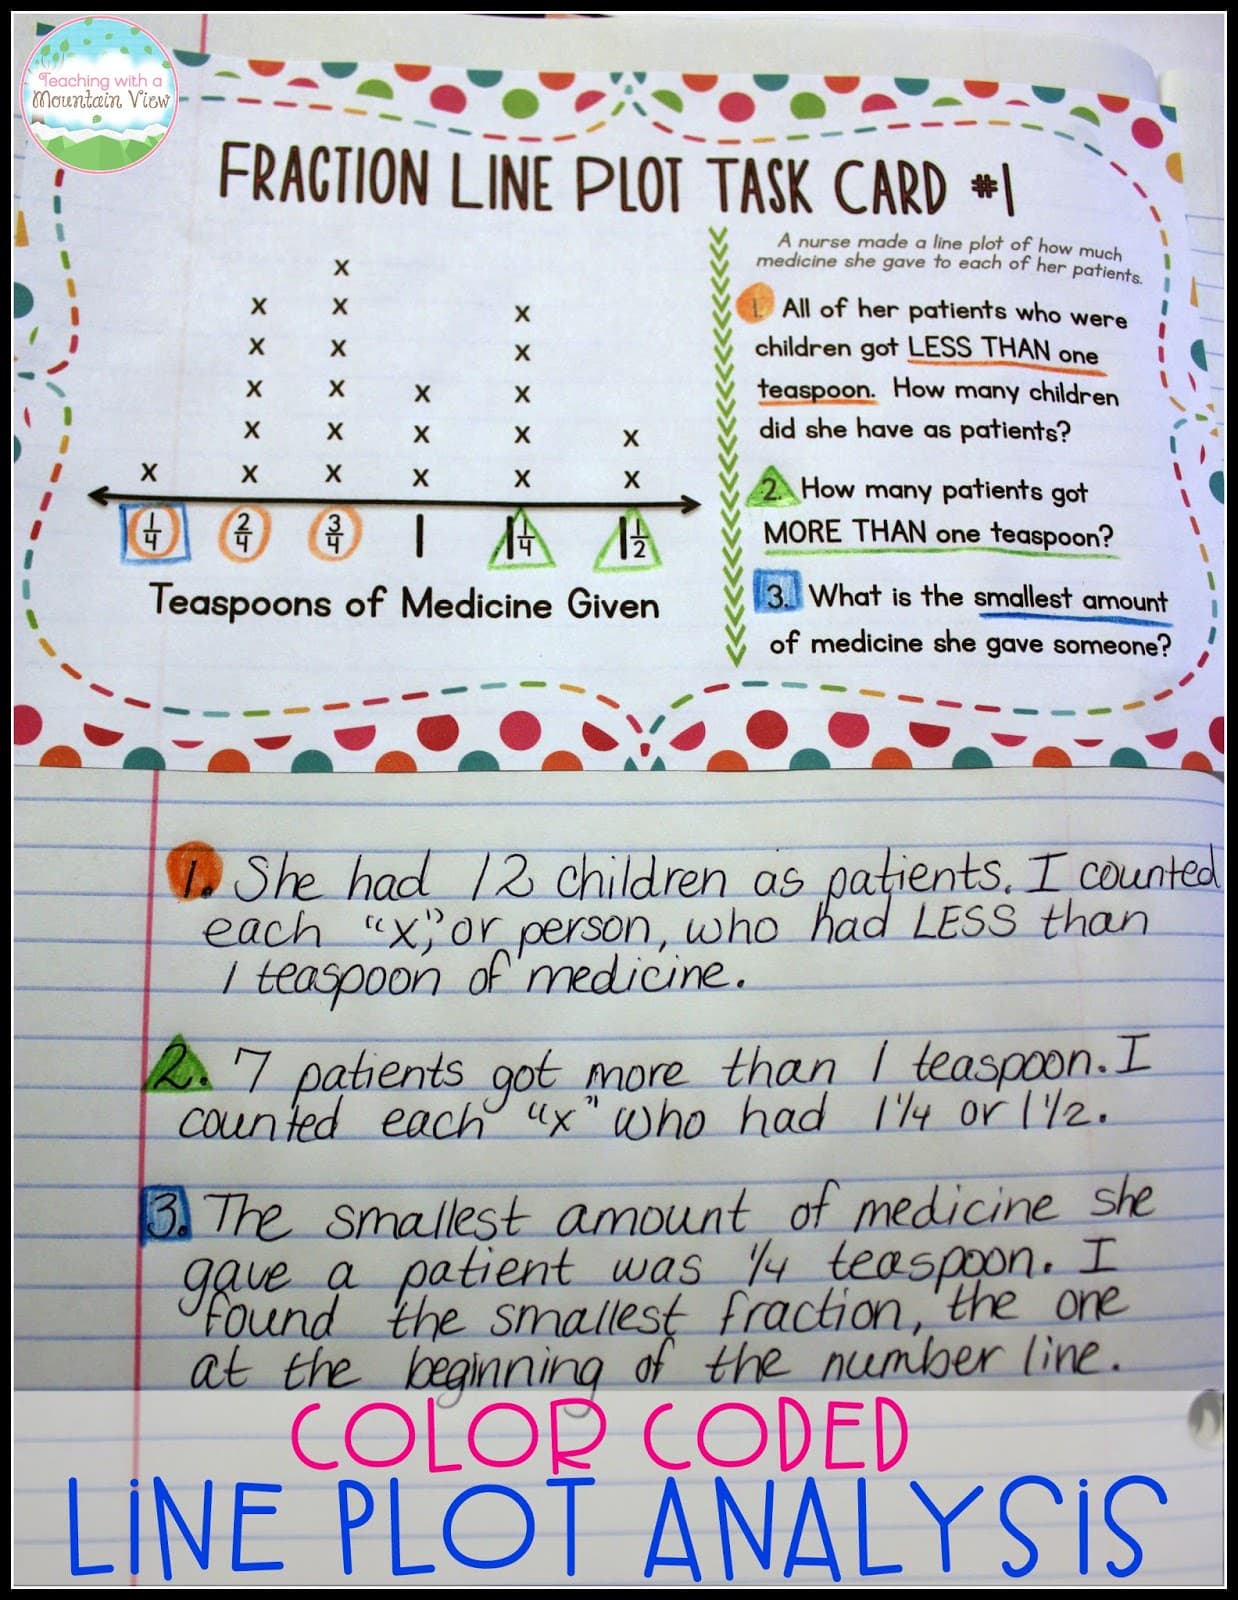 Teaching with a
Mountain View
FRACTION LINE PLOT TASK CARD #1
A nurse made a line plot of how much
medicine she gave to each of her patients.
x
x x x
x x x
x x x x
x x x x x
x x x x x x
1/4 2/4 3/4 1 1 1/4 1 1/2
Teaspoons of Medicine Given
1. All of her patients who were
children got LESS THAN one
teaspoon. How many children
did she have as patients?
2. How many patients got
MORE THAN one teaspoon?
3. What is the smallest amount
of medicine she gave someone?
1. She had 12 children as patients. I counted
each "x," or person, who had LESS than
1 teaspoon of medicine.
2. 7 patients got more than 1 teaspoon. I
counted each "x" who had 1 1/4 or 1 1/2.
3. The smallest amount of medicine she
gave a patient was 1/4 teaspoon. I
found the smallest fraction, the one
at the beginning of the number line.
COLOR CODED
LINE PLOT ANALYSIS